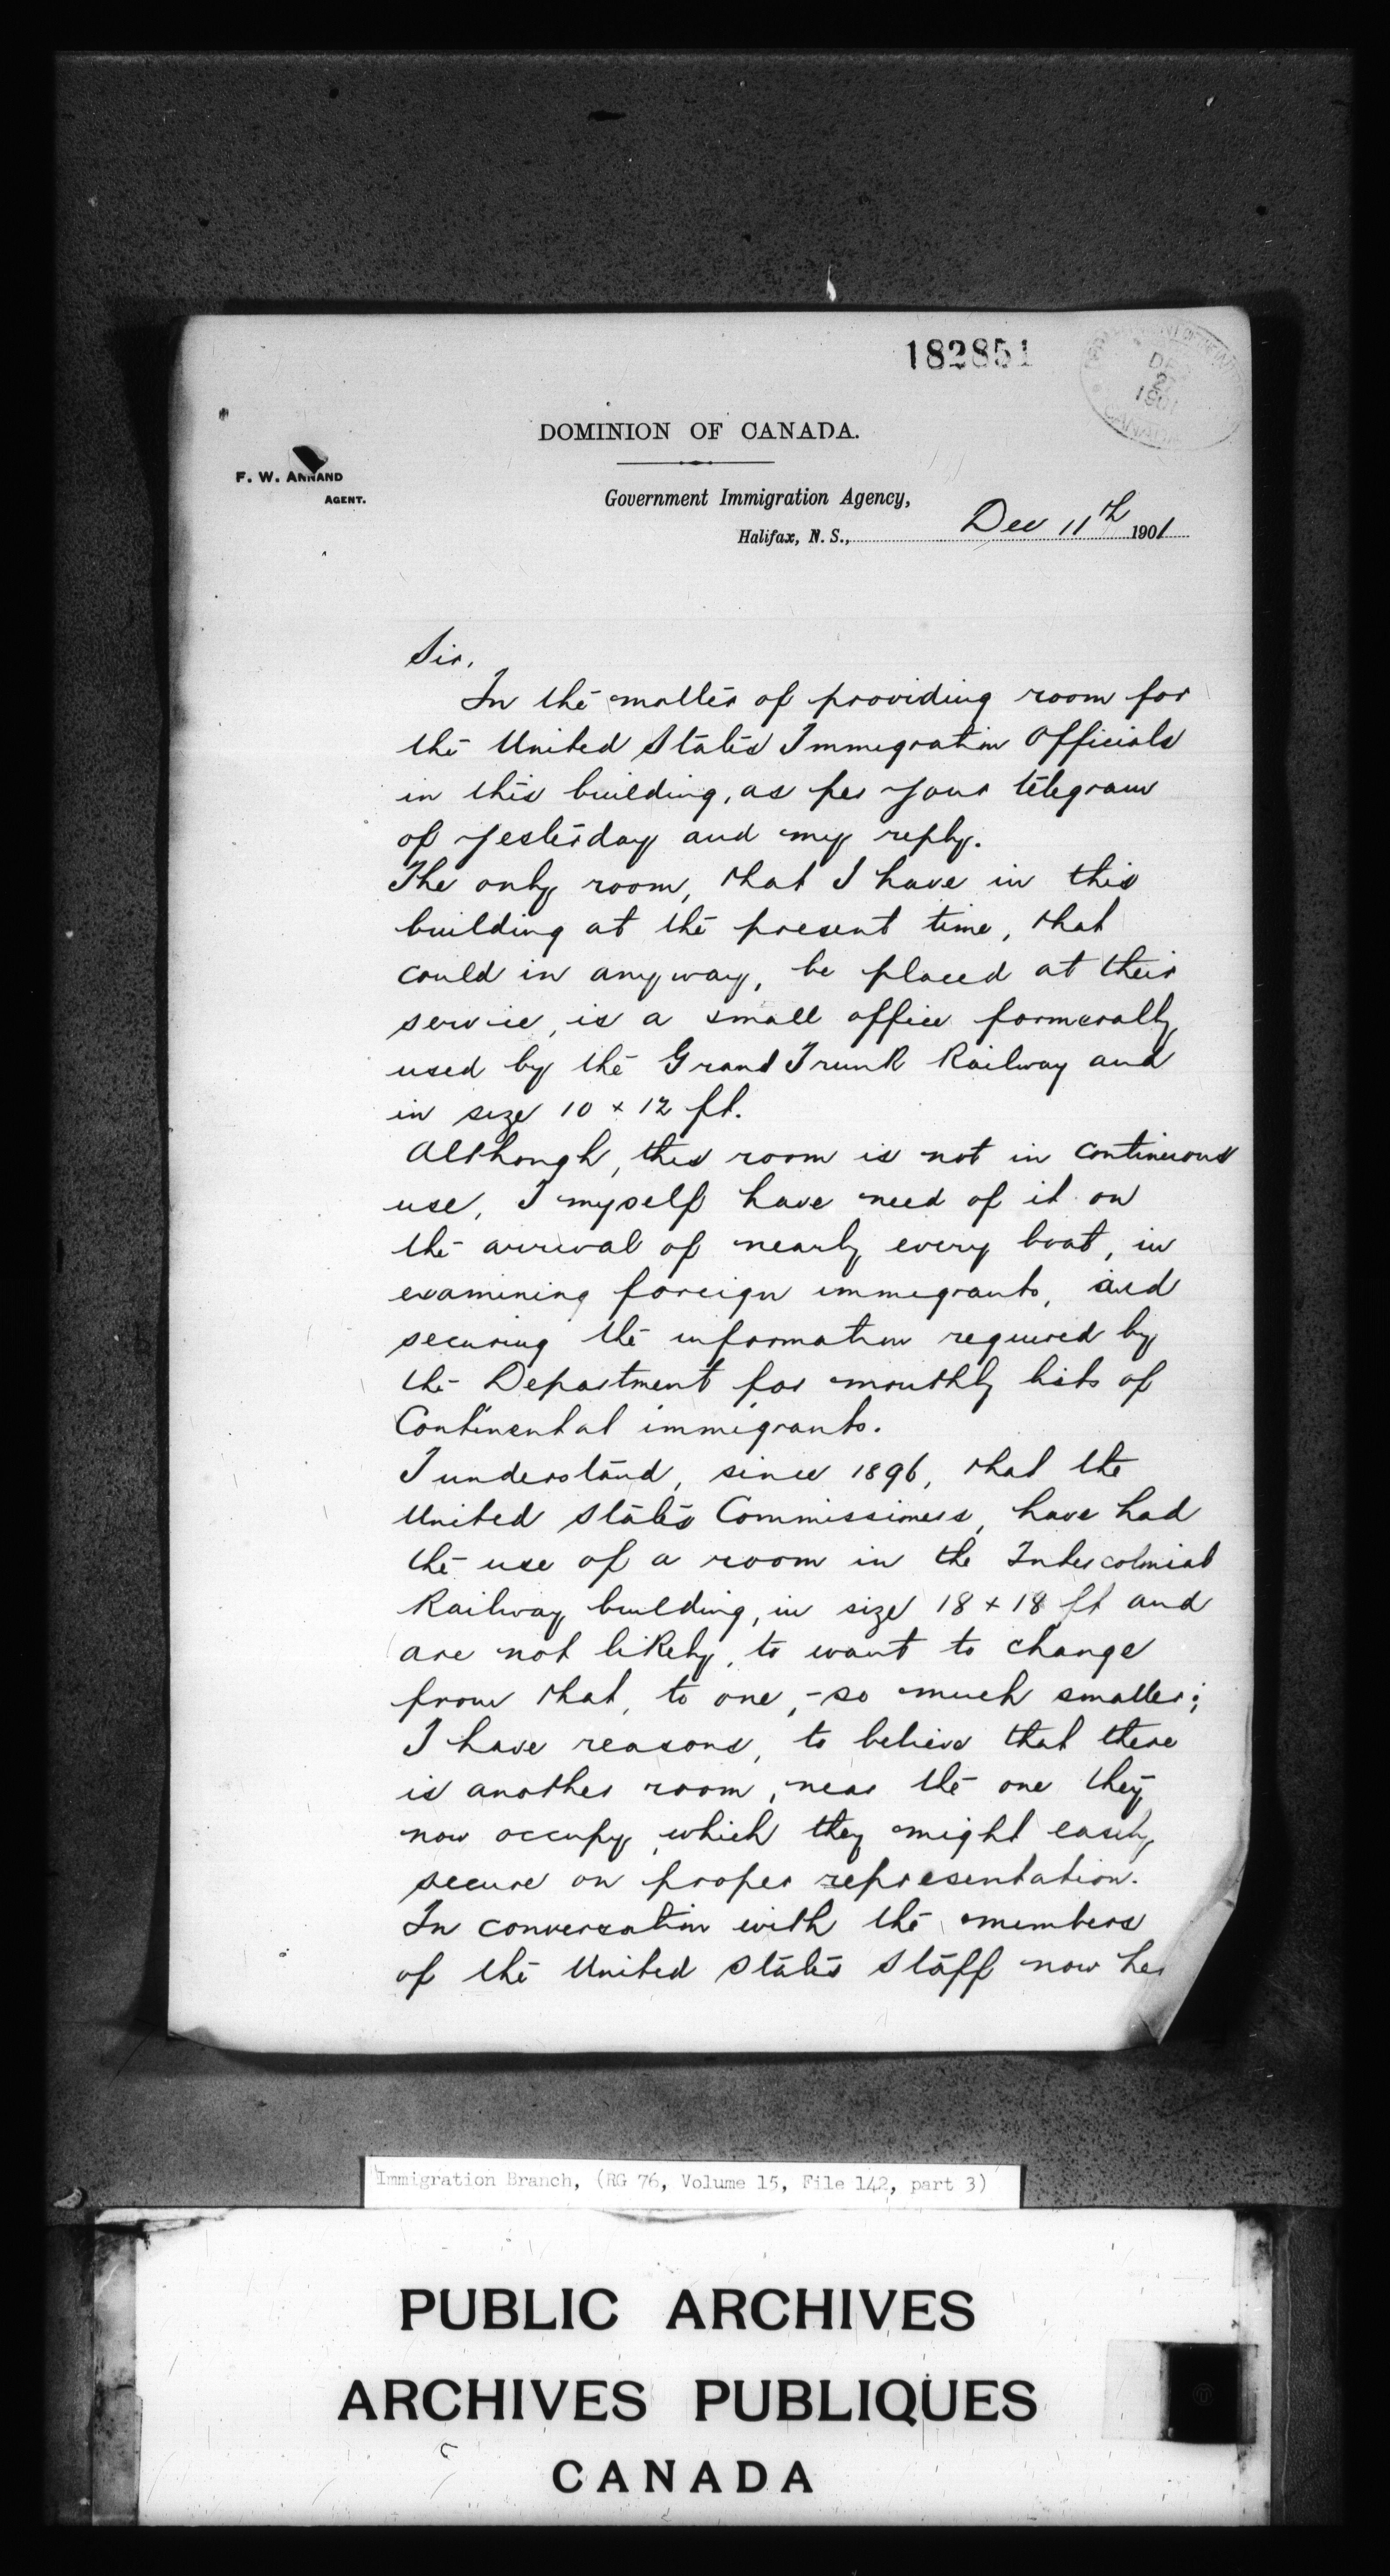 182851
DEPARTMENT OF THE INTERIOR
DEC
1901
CANADA
DOMINION OF CANADA.
F. W. ANNAND
AGENT.
Government Immigration Agency,
Halifax, N. S., Dec 11th 1901
Sir,
In the matter of providing room for
the United States Immigration Officials
in this building, as per your telegram
of yesterday and my reply.
The only room, that I have in this
building at the present time, that
could in any way, be placed at their
service, is a small office formerally
used by the Grand Trunk Railway and
in size 10 x 12 ft.
Although, this room is not in continuous
use, I myself have need of it on
the arrival of nearly every boat, in
examining foreign immigrants, and
securing the information required by
the Department for monthly lists of
Continental immigrants.
I understand, since 1896, that the
United States Commissioners, have had
the use of a room in the Intercolonial
Railway building, in size 18 x 18 ft and
are not likely, to want to change
from that, to one, - so much smaller;
I have reasons, to believe that there
is another room, near the one they
now occupy, which they might easily
secure on proper representation.
In conversation with the members
of the United States Staff now her
Immigration Branch, (RG 76, Volume 15, File 142, part 3)
PUBLIC ARCHIVES
ARCHIVES PUBLIQUES
CANADA